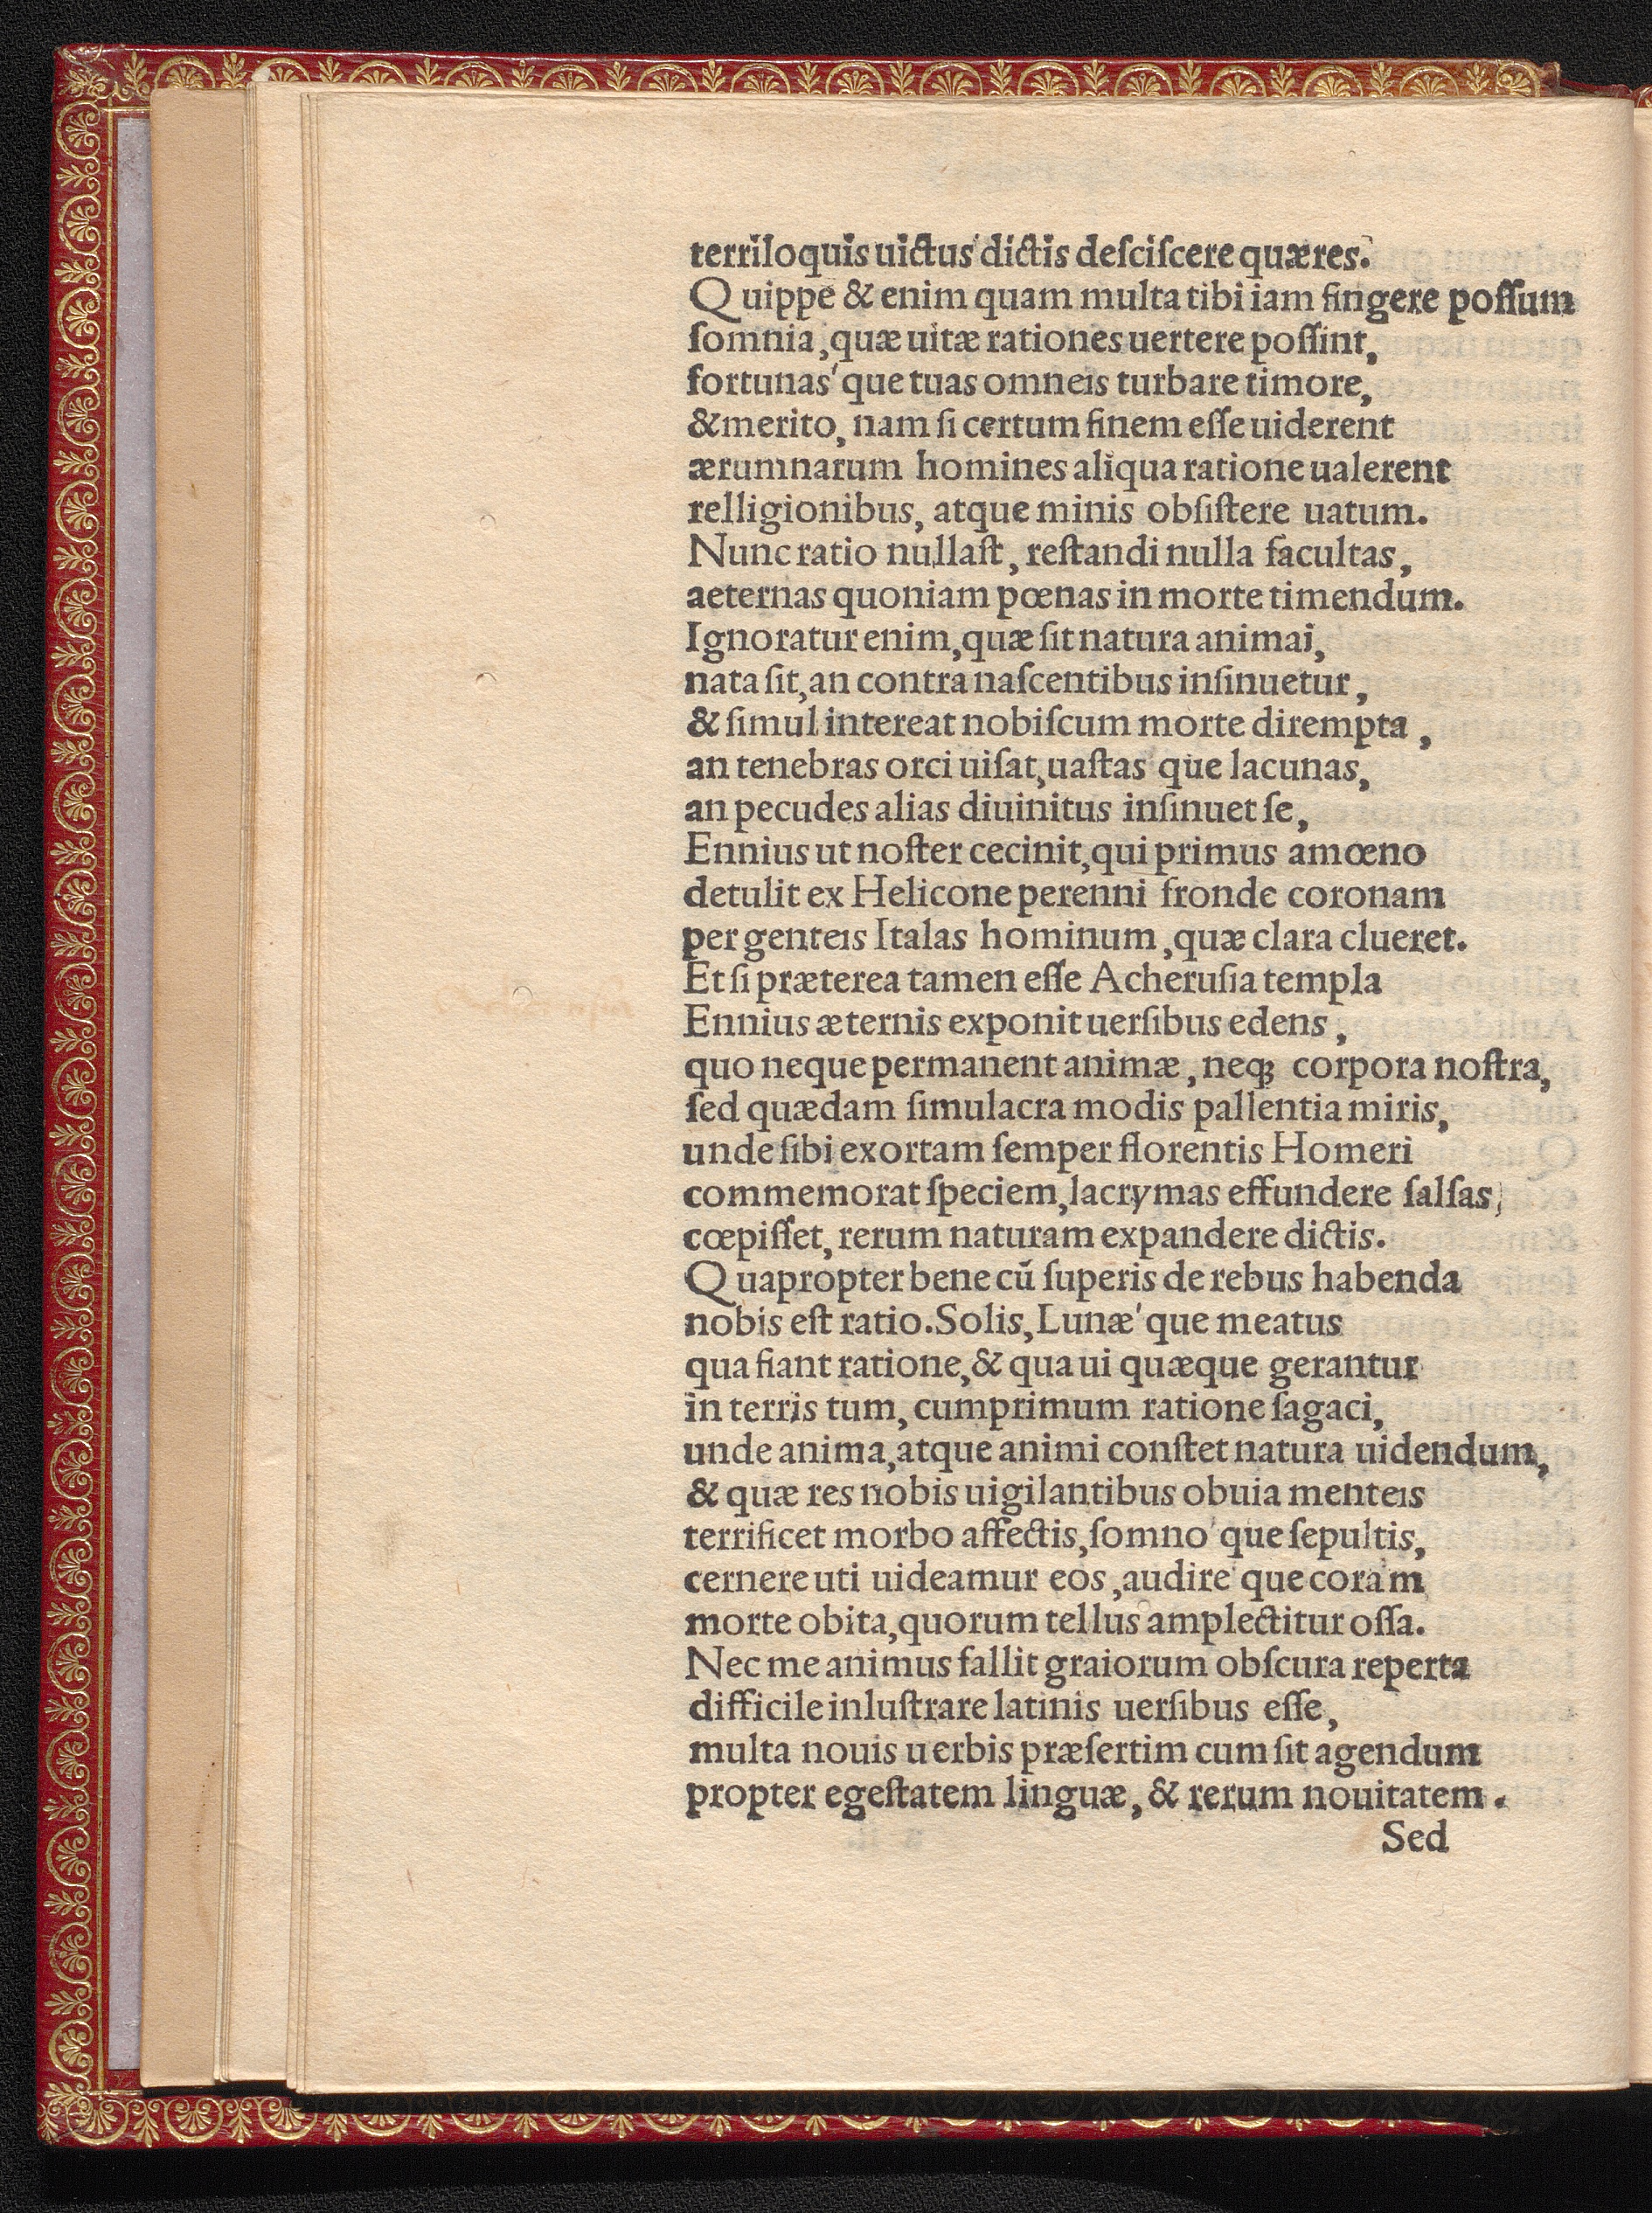 terriloquis uictus dictis deſciſcere quæres.
Quippe & enim quam multa tibi iam fingere poſſum
ſomnia, quæ uitæ rationes uertere poſſint,
fortunas'que tuas omneis turbare timore,
& merito, nam ſi certum finem eſſe uiderent
ærumnarum homines aliqua ratione ualerent
relligionibus, atque minis obſiſtere uatum.
Nunc ratio nullaſt, reſtandi nulla facultas,
aeternas quoniam pœnas in morte timendum.
Ignoratur enim, quæ ſit natura animai,
nata ſit, an contra naſcentibus inſinuetur,
& ſimul intereat nobiſcum morte dirempta,
an tenebras orci uiſat, uaſtas'que lacunas,
an pecudes alias diuinitus inſinuet ſe,
Ennius ut noſter cecinit, qui primus amœno
detulit ex Helicone perenni fronde coronam
per genteis Italas hominum, quæ clara clueret.
Et ſi præterea tamen eſſe Acheruſia templa
Ennius æternis exponit uerſibus edens,
quo neque permanent animæ, neqꝫ corpora noſtra,
ſed quædam ſimulacra modis pallentia miris,
unde ſibi exortam ſemper florentis Homeri
commemorat ſpeciem, lacrymas effundere ſalſas,
cœpiſſet, rerum naturam expandere dictis.
Quapropter bene cū ſuperis de rebus habenda
nobis eſt ratio. Solis, Lunæ'que meatus
qua fiant ratione, & qua ui quæque gerantur
in terris tum, cumprimum ratione ſagaci,
unde anima, atque animi conſtet natura uidendum,
& quæ res nobis uigilantibus obuia menteis
terrificet morbo affectis, ſomno'que ſepultis,
cernere uti uideamur eos, audire'que coram
morte obita, quorum tellus amplectitur oſſa.
Nec me animus fallit graiorum obſcura reperta
difficile inluſtrare latinis uerſibus eſſe,
multa nouis uerbis præſertim cum ſit agendum
propter egeſtatem linguæ, & rerum nouitatem.
Sed